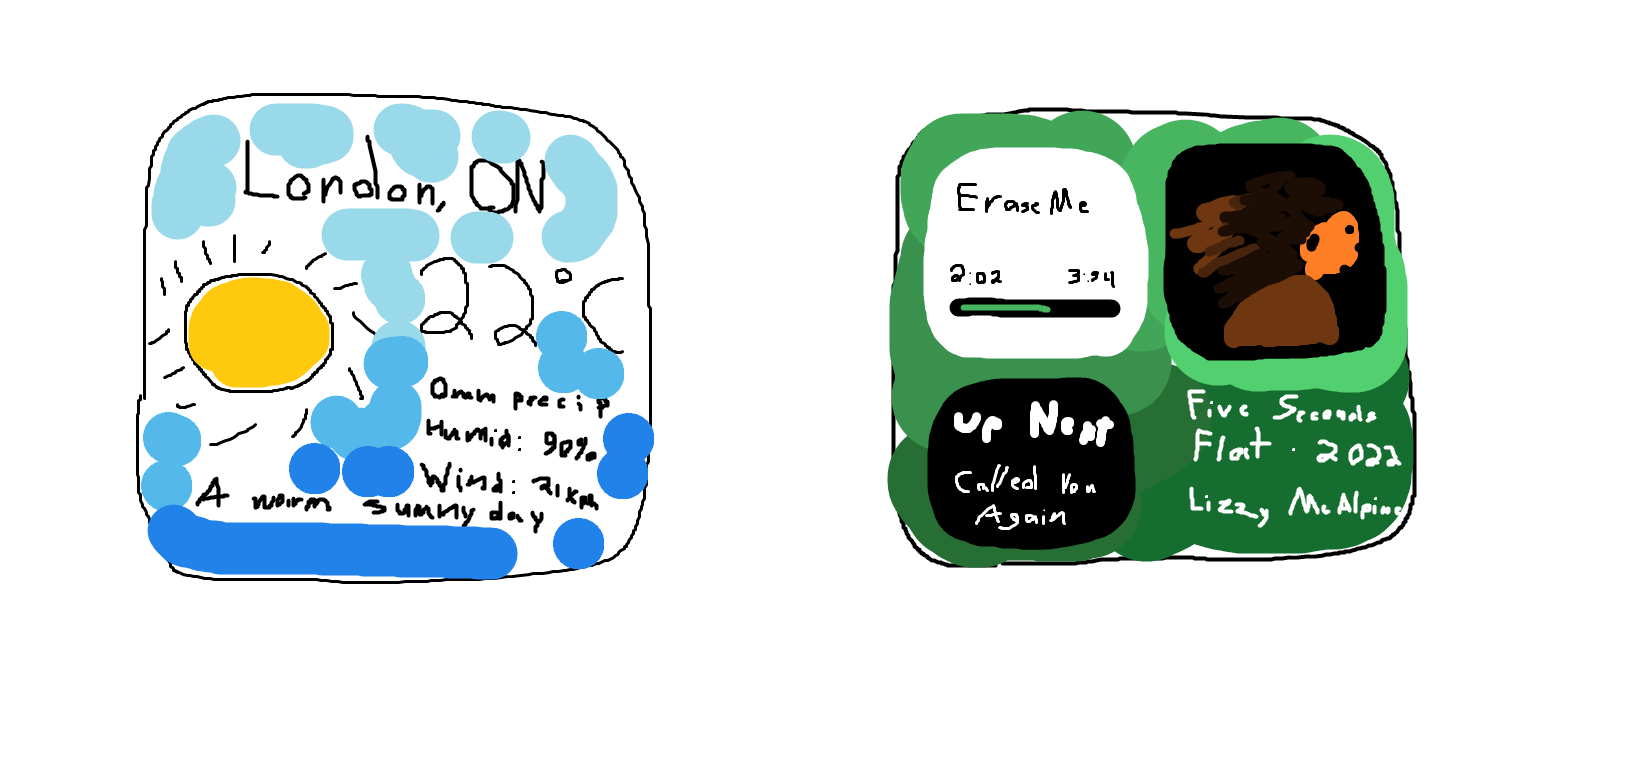 London, ON
22°C
0mm precip
Humid: 90%
Wind: 21kph
A warm sunny day
Erase Me
2:02 3:54
Up Next
Called You
Again
Five Seconds
Flat · 2022
Lizzy McAlpine